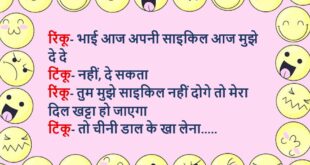 रिंकू- भाई आज अपनी साइकिल आज मुझे
दे दे
टिंकू- नहीं, दे सकता
रिंकू- तुम मुझे साइकिल नहीं दोगे तो मेरा
दिल खट्टा हो जाएगा
टिंकू- तो चीनी डाल के खा लेना.....